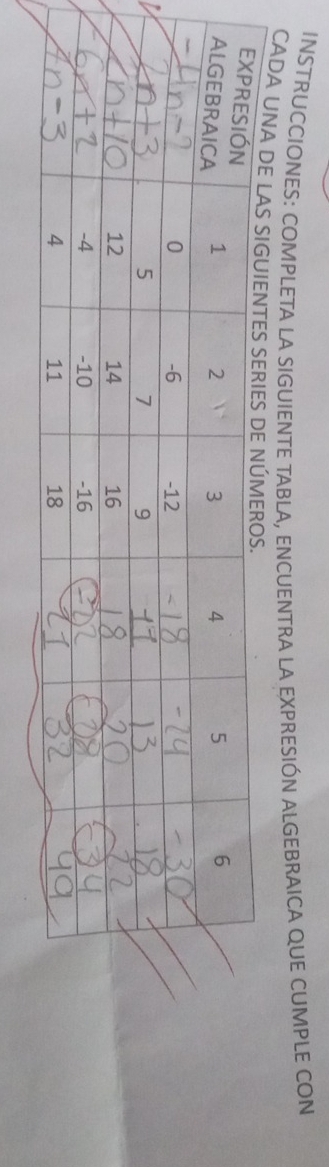 INSTRUCCIONES: COMPLETA LA SIGUIENTE TABLA, ENCUENTRA LA EXPRESIÓN ALGEBRAICA QUE CUMPLE CON
CADA UNA DE LAS SIGUIENTES SERIES DE NÚMEROS.
EXPRESIÓN
ALGEBRAICA 1 2 3 4 5 6
0 -6 -12 -18 -24 -30
2n+3 5 7 9 11 13 18
2n+10 12 14 16 18 20 22
-6n+2 -4 -10 -16 -22 -28 -34
7n-3 4 11 18 32